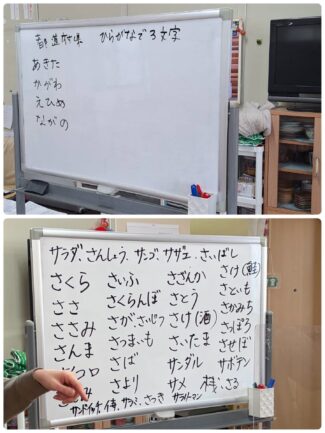 都道府県 ひらがなで3文字
あきた
かがわ
えひめ
ながの
サラダ、さんしょう、サンゴ、サザエ、さいばし
さくら さいふ さざんか さけ(鮭)
ささ さくらんぼ さとう さといも
ささみ さが、さいじつ さけ(酒) さかみち
さんま さつまいも さいたま さっぽろ
さば サンダル させぼ
さより サメ サボテン
サンドイッチ 侍、サラミ、さつき サラリーマン さる